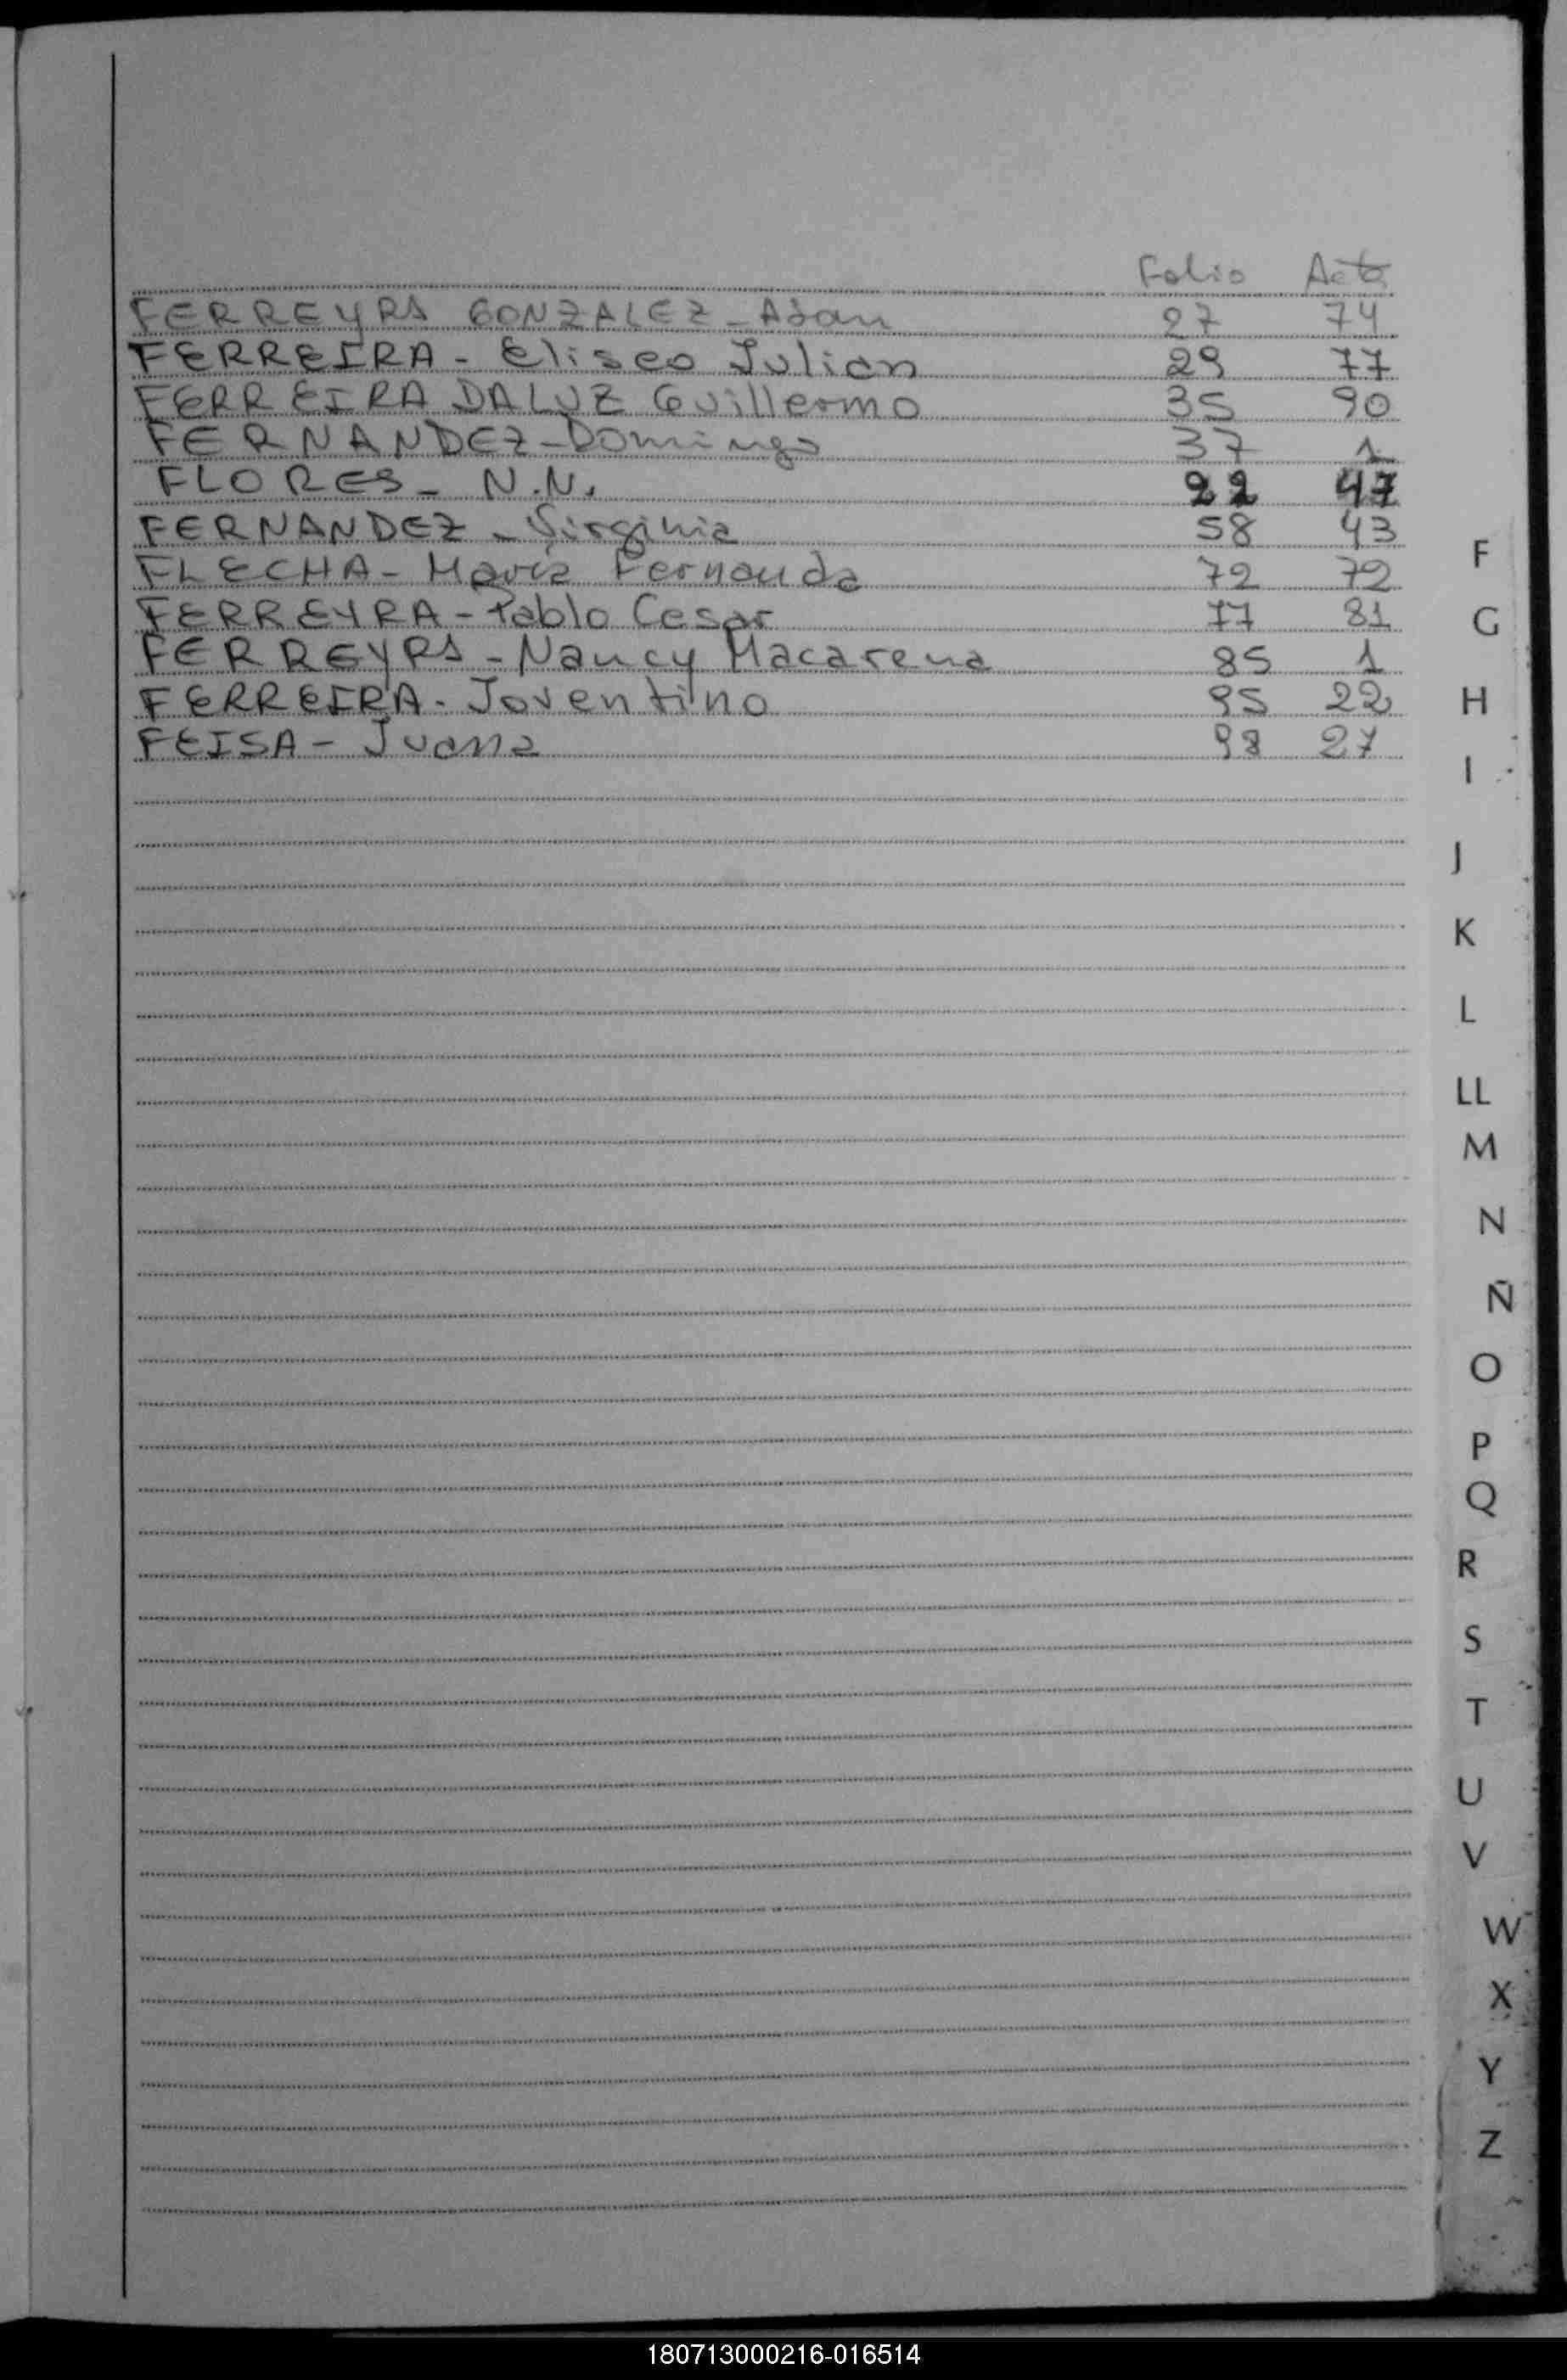 Folio Acta
FERREYRA GONZALEZ - Adan 27 74
FERREIRA - Eliseo Julian 29 77
FERREIRA DALUZ Guillermo 35 90
FERNANDEZ - Domingo 37 1
FLORES - N.N. 22 47
FERNANDEZ - Virginia 58 43
FLECHA - María Fernanda 72 72
FERREYRA - Pablo Cesar 77 81
FERREYRA - Nancy Macarena 85 1
FERREIRA - Joventino 95 22
FEISA - Juana 98 27
F
G
H
I
J
K
L
LL
M
N
Ñ
O
P
Q
R
S
T
U
V
W
X
Y
Z
180713000216-016514